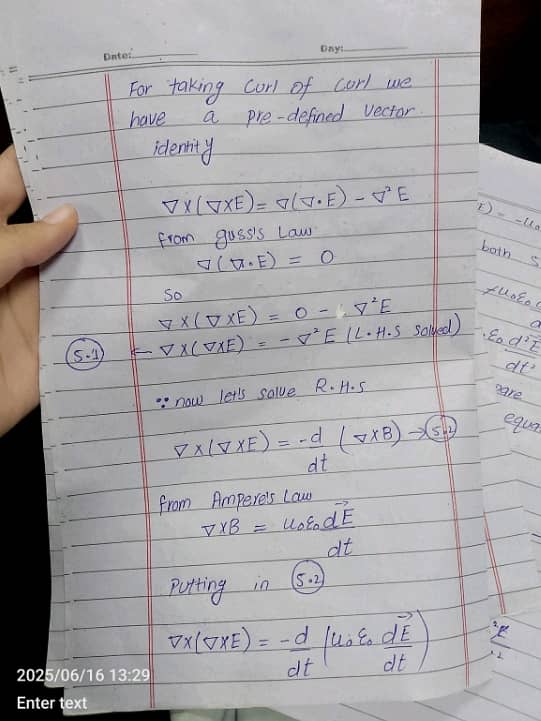 Date:
Day:
For taking Curl of Curl we
have a pre-defined Vector
identity
∇X(∇XE) = ∇(∇·E) - ∇²E
from guss's Law
∇(∇·E) = 0
So
∇X(∇XE) = 0 - ∇²E
(5.1) ← ∇X(∇XE) = -∇²E (L.H.S Solved)
∵ now let's solve R.H.S
∇X(∇XE) = -d/dt (∇XB) → (5.2)
from Ampere's Law
∇XB = μ₀ε₀ dE⃗/dt
Putting in (5.2)
∇X(∇XE) = -d/dt (μ₀ε₀ dE⃗/dt)
both S
ε₀ d²E
dt²
are
equa
2025/06/16 13:29
Enter text